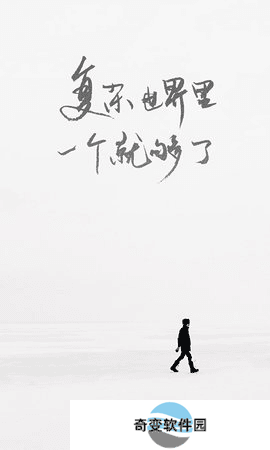 复杂世界里
一个就够了
奇变软件园